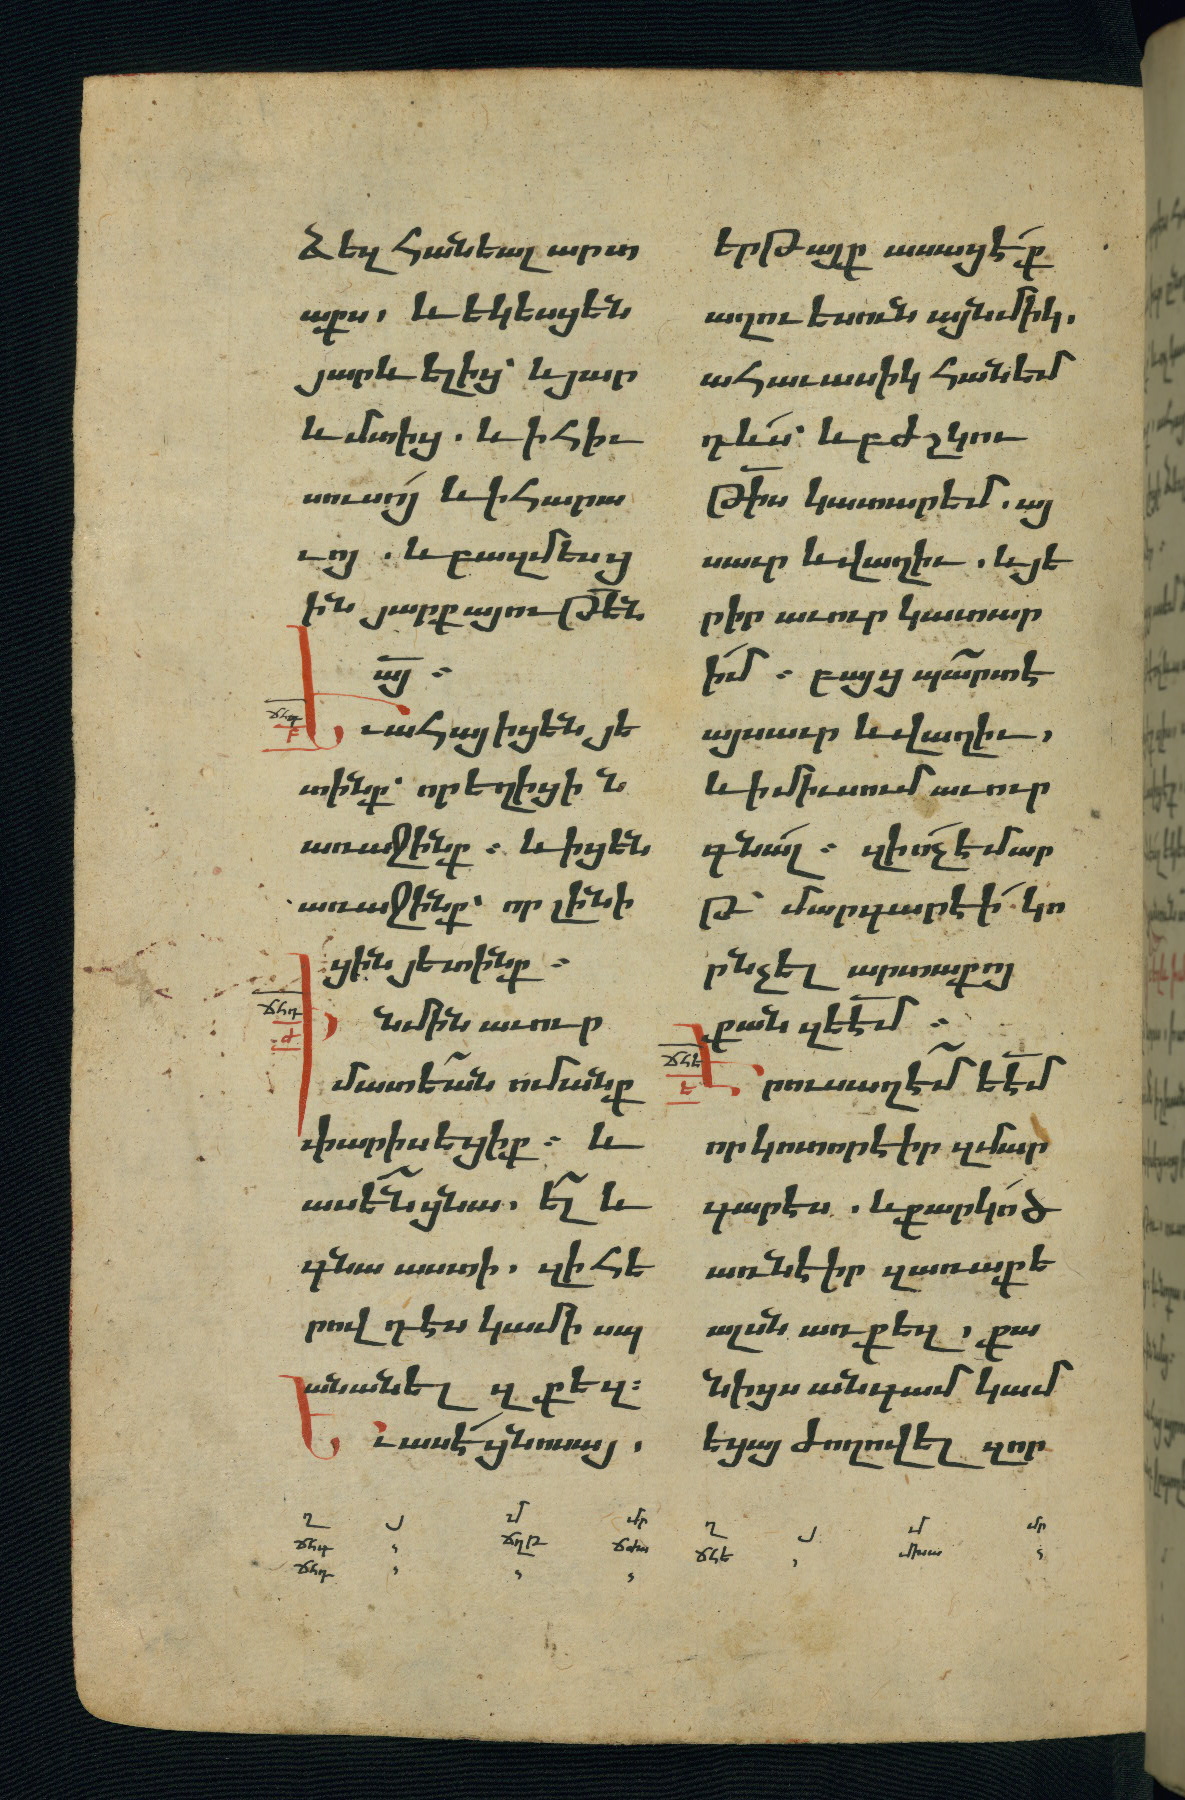 ձեզ հանեալ արտ
աքս, և եկեսցեն
յարևելից՝ և յար
ևմտից. և ի հիւ
սուսոյ և ի հարա
ւոյ. և բազմեսց
ին յարքայութ՟են
ա՟յ :
ճհգ
բ
Եւ ահայ իցեն յե
տինք՝ որ եղիցի ն
առաջինք : և իցեն
առաջինք՝ որ լինի
ցին յետինք :
ճհդ
ժ
Ի նմին աւուր
մատեան ոմանք
փարիսեցիք : և
ասեն ցնա, ել և
գնա աստի, զի հե
րովդէս կամի սպ
անանել զքեզ:
Եւ ասէ ցնոսայ,
երթայք ասացէք
աղուեսուն այնմիկ,
ահաւասիկ հանեմ
դևս՝ և բժշկու
թ՟իս կատարեմ. այ
սաւր և վաղիւ, և յե
րիր աւուր կատար
իմ : բայց պարտ է
այսաւր և վաղիւ,
և ի միւսում աւուր
գնալ : զի ոչ է մար
թ՝ մարգարէի կո
րնչել արտաքոյ
քան զե՟էմ :
ճհե
ե
Երուսաղէմ ե՟էմ
որ կոտորէիր զմար
գարէս, և քարկոծ
առնէիր զառաքե
ալսն առ քեզ, քա
նիցս անգամ կամ
եցայ ժողովել զոր
ղ յ մ մր ղ յ մ մր
ճհգ , ճղը ճժա ճհե ,
ճհդ , , ,